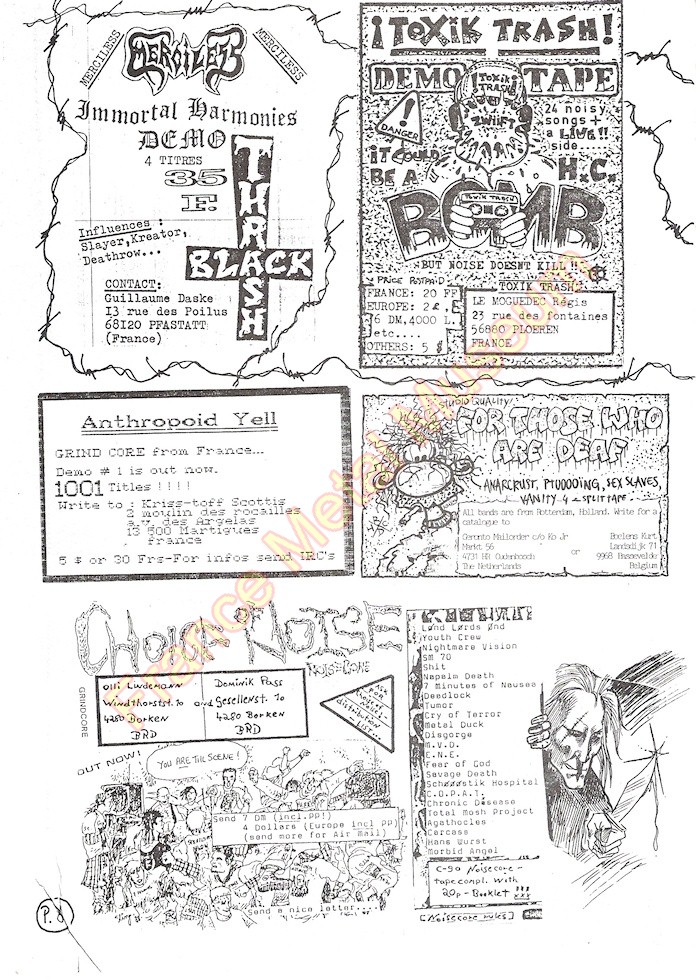 MERCILESS
MERCILESS
MERCILESS
Immortal Harmonies
DEMO
4 TITRES
35
F.
THRASH
BLACK
Influences :
Slayer,Kreator,
Deathrow...
CONTACT:
Guillaume Daske
I3 rue des Poilus
68I20 PFASTATT
(France)
¡TOXIK TRASH!
DEMO TAPE
TOXIK
TRASH
DANGER
24 noisy
songs +
a LIVE!!
side...
IT COULD
BE A
H.C.
BOMB
TOXIK TRASH
BUT NOISE DOESNT KILL !!
PRICE POSTPAID
FRANCE: 20 FF
EUROPE: 2£,
6 DM,4000 L.
etc....
OTHERS: 5 $
TOXIK TRASH:
LE MOGUEDEC Régis
23 rue des fontaines
56880 PLOEREN
FRANCE
Anthropoid Yell
GRIND CORE from France...
Demo # 1 is out now.
1001 Titles !!!!
Write to : Kriss-toff Scottis
2 moulin des rocailles
a.v. des Argelas
13 500 Martigues
france
5 $ or 30 Frs-For infos send IRC's
STUDIO QUALITY
FOR THOSE WHO
ARE DEAF
ANARCRUST, PTOOOOING, SEX SLAVES,
VANITY 4 - SPLIT TAPE -
All bands are from Rotterdam, Holland. Write for a
catalogue to
Geronto Mailorder c/o Ko Jr
Markt 56
4731 HR Oudenbosch
The Netherlands
or
Boelens Kurt
Landsdijk 71
9968 Bassevelde
Belgium
CHOICE OF NOISE
NOISECORE
GRINDCORE
Olli Lindemann
Windthorststr. 10
4280 Borken
BRD
and
Dominik Pass
Gesellenst. 10
4280 Borken
BRD
Ask
for
distribution
OUT NOW!
YOU ARE THE SCENE!
Send 7 DM (incl.PP!)
4 Dollars (Europe incl PP)
(send more for Air Mail)
Send a nice letter....
Lønd Lørds Ønd
Youth Crew
Nightmare Vision
SM 70
Shit
Napalm Death
7 Minutes of Nausea
Deadlock
Tumor
Cry of Terror
Metal Duck
Disgorge
M.V.D.
E.N.E.
Fear of God
Savage Death
Schøøøstik Hospital
C.O.P.A.T.
Chronic Disease
Total Mosh Project
Agathocles
Carcass
Hans Wurst
Morbid Angel
C-90 Noisecore-
tapecompl. with
20p-Booklet !!!
[Noisecore rules]
P.8
France Metal Museum